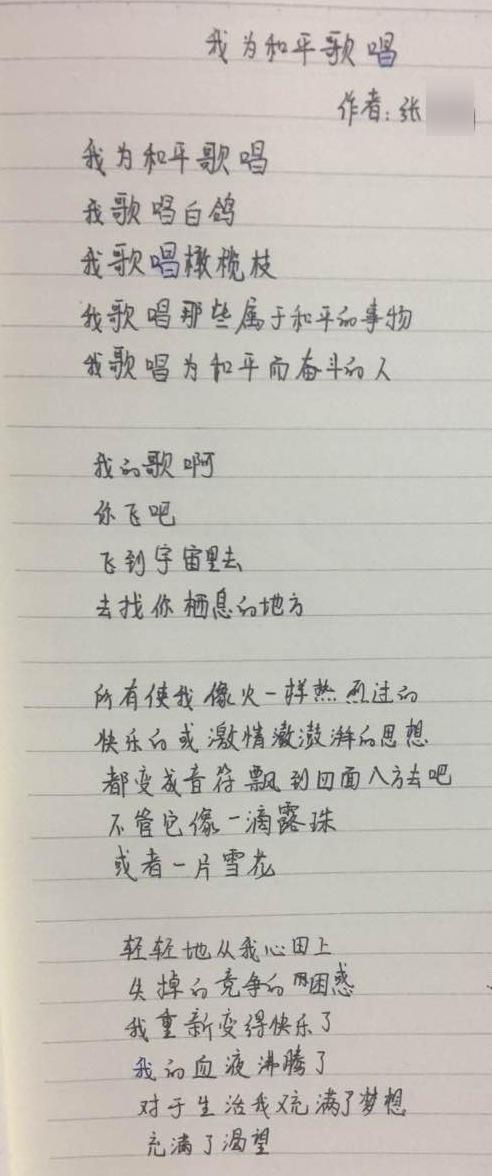 我为和平歌唱
作者:张
我为和平歌唱
我歌唱白鸽
我歌唱橄榄枝
我歌唱那些属于和平的事物
我歌唱为和平而奋斗的人
我的歌啊
你飞吧
飞到宇宙里去
去找你栖息的地方
所有使我像火一样热烈过的
快乐的或激情澎湃的思想
都变成音符飘到四面八方去吧
不管它像一滴露珠
或者一片雪花
轻轻地从我心田上
失掉的竞争的困惑
我重新变得快乐了
我的血液沸腾了
对于生活我又充满了梦想
充满了渴望